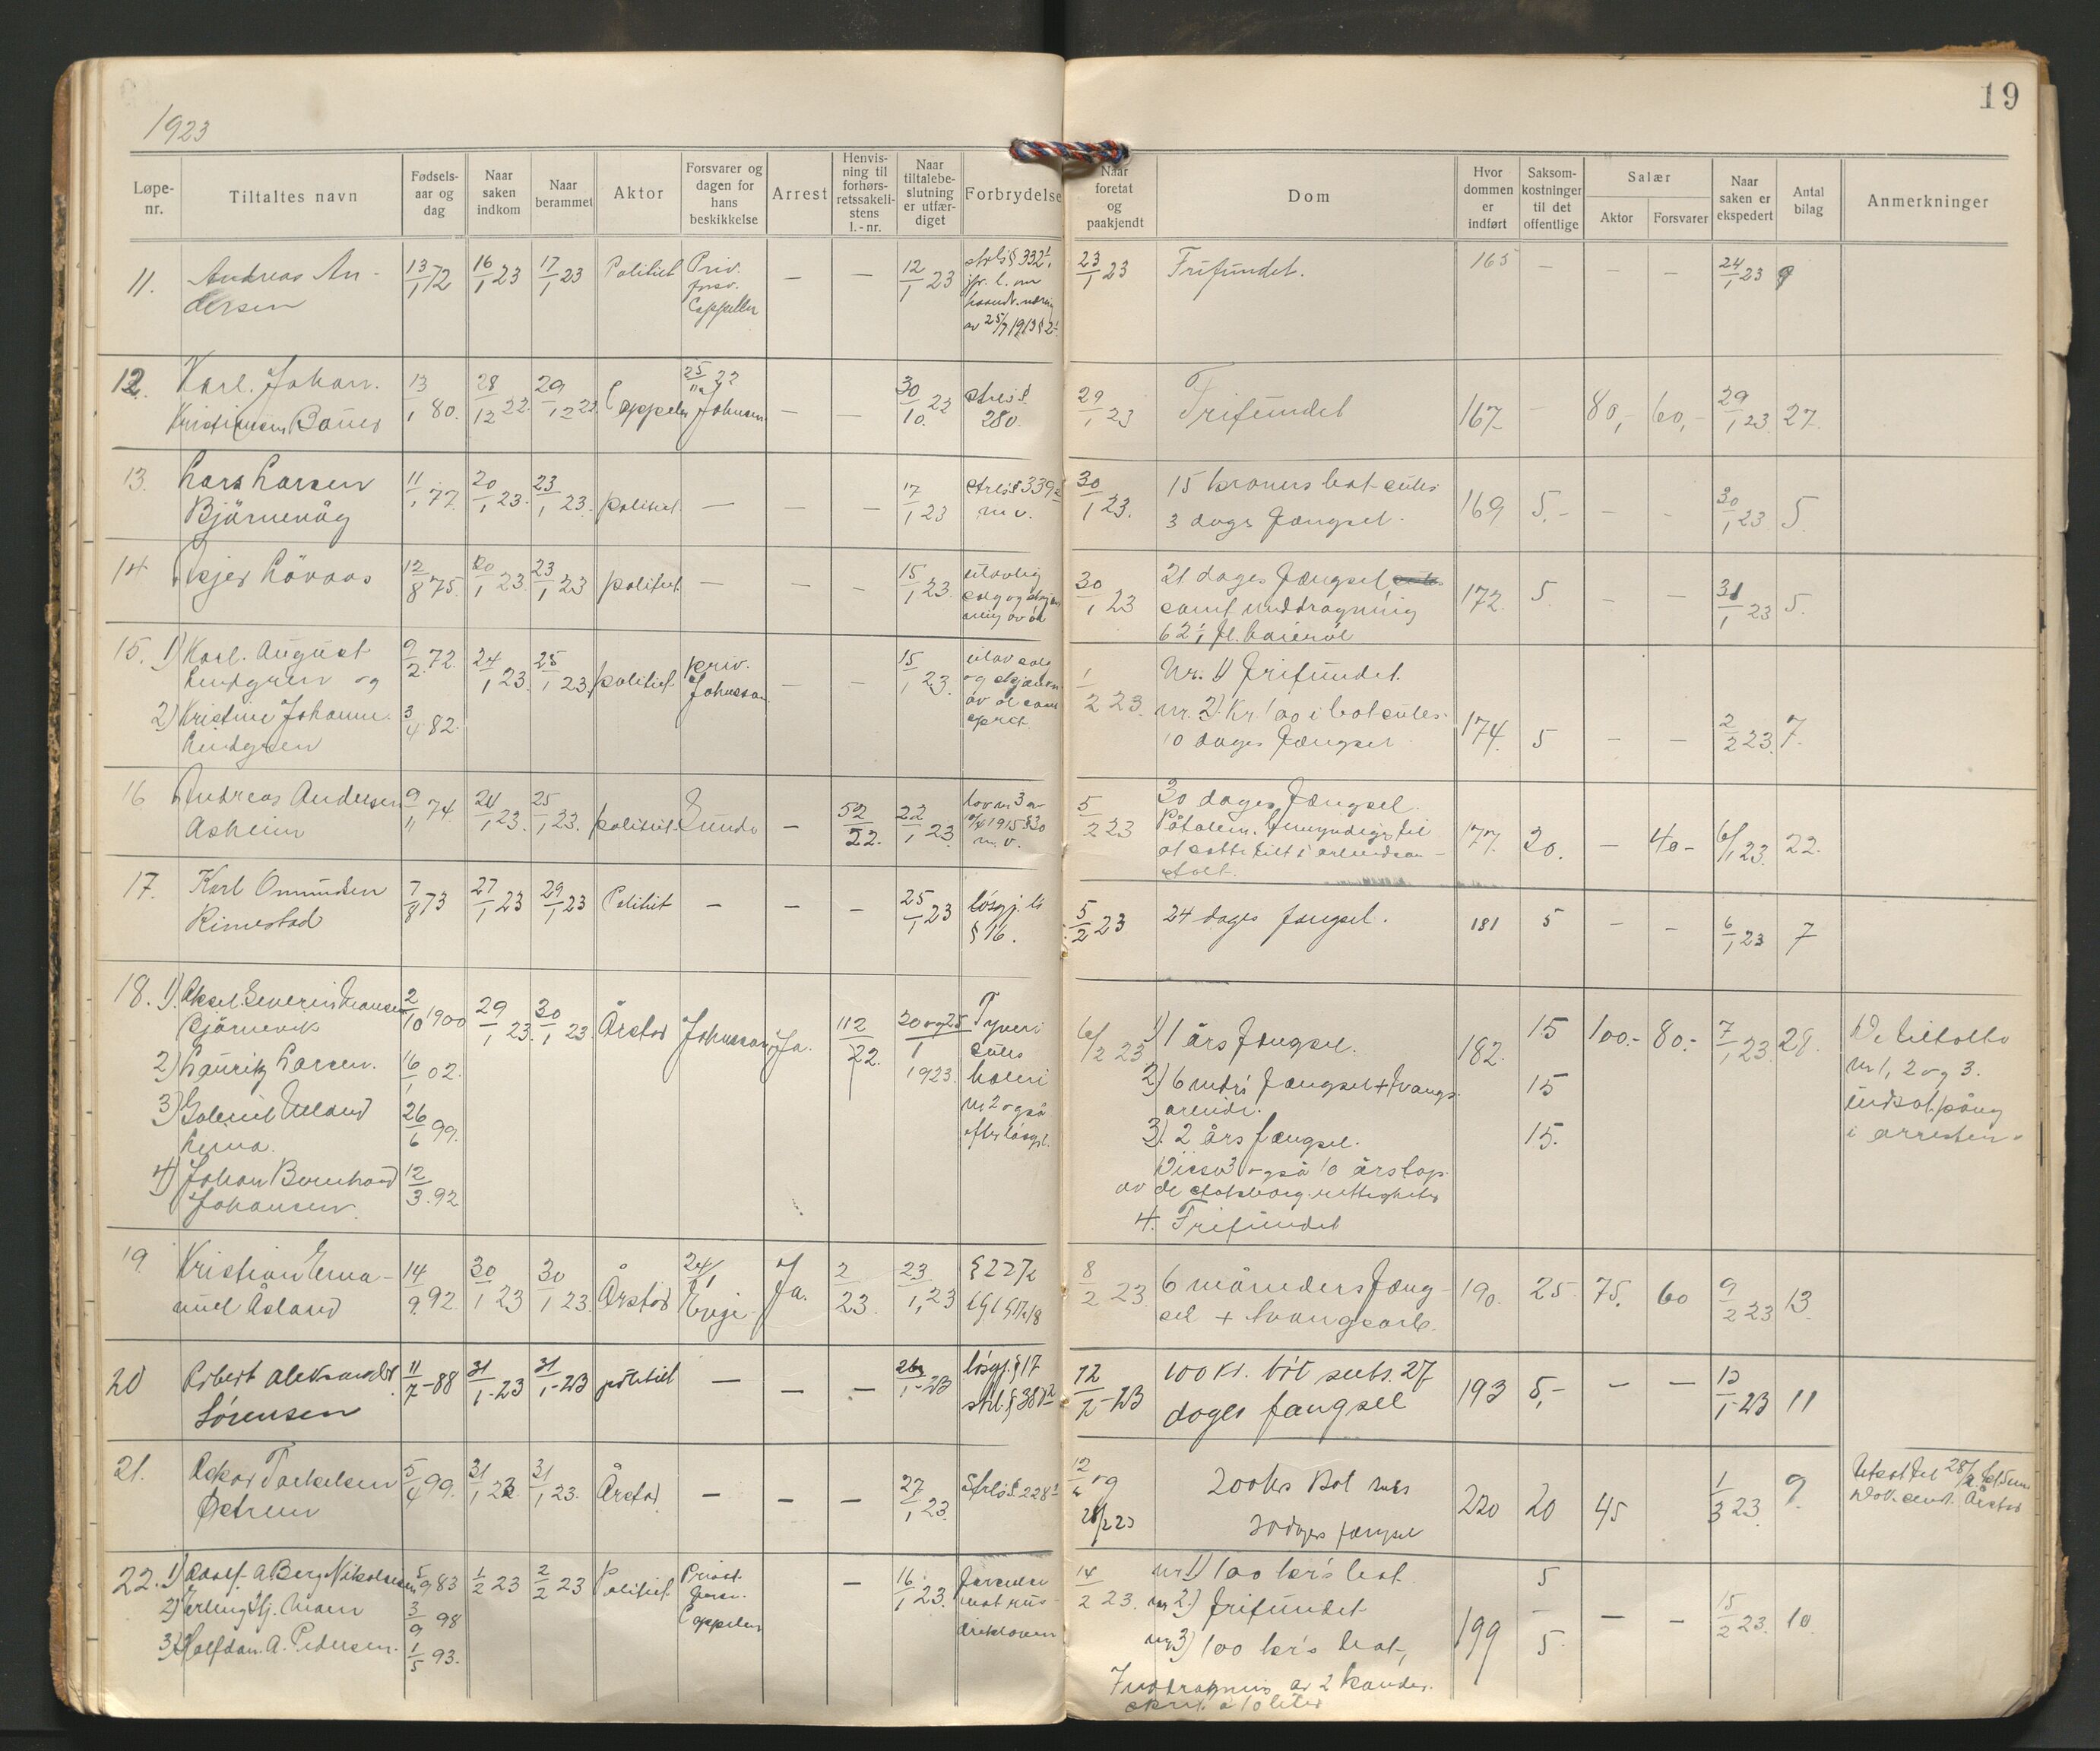 19
1923
Løpe-nr.	Tiltaltes navn	Fødsels-aar og dag	Naar saken indkom	Naar berammet	Aktor	Forsvarer og dagen for hans beskikkelse	Arrest	Henvisning til forhørsretssakelistens l.-nr.	Naar tiltalebeslutning er utfærdiget	Forbrydelse	Naar foretat og paakjendt	Dom	Hvor dommen er indført	Saksomkostninger til det offentlige	Salær Aktor	Forsvarer	Naar saken er ekspedert	Antal bilag	Anmerkninger
11. Andreas An- 13/1 72 16/1 23 17/1 23 Politiet Priv. — — 12/1 23 strls § 332 1, 23/1 23 Frifundet. 165 — — — 24/1 23 9
dersen forsv. jfr. l. om
Cappelen haandv.næring
av 25/7 1913 § 2
12. Karl. Johan. 13/1 80. 28/12 22. 29/12 22. Cappelen 25/11 22 — — 30/10. 22 strls § 29/1 23 Frifundet 167 — 80,- 60,- 29/1 23. 27.
Kristiansen Bauer Johnsen 280.
13. Lars Larsen 11/1 77. 20/1 23. 23/1 23. politiet. — — — 17/1 23 strls § 339 2 30/1 23. 15 kroners bot subs 169 5.- — — 30/1 23 5.
Bjørnevåg m v. 3 dags fængsel.
14 Lövaas 12/8 75. 20/1 23. 23/1 23 politiet. — — — 15/1 23. ulovlig 30/1 23 21 dages fængsel 172. 5. — — 31/1 23 5.
salg og skjæn-
kning av öl samt inddragning
62 1/1 fl. baierøl
15. 1) Karl. August 9/2 72. 24/1 23. 25/1 23. politiet priv. — — 15/1 23. ulov salg 1/2 23. Nr. 1) Frifundet.
Lindgren og Johnsson og skjænkn
2) Kristine Johanne 3/4 82. av öl samt nr. 2). Kr. 100 i bot subs. 174. 5 — — 2/2 23. 7.
Lindgren sprit. 10 dages fængsel
16 Andreas Andersen 9/11 74. 24/1 23. 25/1 23. politiet. Sunde — 52/22. 22/1 23. lov nr 3 av 5/2 23 30 dages fængsel. 177. 20. — 40- 6/1 23. 22.
Asheim 1915 § 30 Påtalem. bemyndiges til
m. v. at sætte tilt i arbeidsan-
stalt.
17. Karl Omundsen 7/8 73 27/1 23 29/1 23 Politiet — — — 25/1 23 løsgj. ls 5/2 23 24 dages fængsel. 181 5 — — 6/1 23 7
Rimestad § 16.
18. 1). Aksel. Severin 2/10 1900 29/1 23. 30/1 23. Årstad Johnsson Ja. 112/22. 20 og 25/1 1923. Tyveri 6/2 23 1) 1 års fængsel. 182. 15 100.- 80.- 7/1 23. 28. De tiltalte
Bjørnevik subs nr 1, 2 og 3.
2) Lauritz Larsen. 16/1 02. hæleri 2) 6 mdrs fængsel + tvangs- 15
3) Gabriel Ueland 26/6 99. nr 2 også arbeide. i arresten.
Leima. efter løsgl. 3). 2 års fængsel. 15.
4) Johan Bernhard 12/3. 92 Disse også 10 års tap
Johansen. av de statsborg. rettigheter
4. Frifundet
19 Kristian Ema- 14/9. 92. 30/1 23 30/1 23. Årstad 24/1 Ja. 2/23. 23/1, 23 § 227 8/2 23. 6 måneders fæng- 190. 25. 75. 60 9/2 23. 13.
nuel Åsland sel + tvangsarb.
20 Robert Aleksander 11/7-88 31/1-23 31/1-23 politiet — — — 26/1-23 løsgj. § 17 12/2-23 100 kr. bot subs. 27 193 5,- — — 13/1-23 11
Sørensen dages fængsel
21. Oskar Torkelsen 5/4 99. 31/1 23. 31/1 23. Årstad — — — 27/1 23. Strls § 228 1 12/2 og 26/2 23 200 krs Bot subs 220 20 45 1/3 23. 9.
Østrem 30 dages fængsel Årstad
22. 1) Adolf. A Berg Nikolaisen 5/9 83 1/2 23 2/2 23 Politiet Privat — 16/1 23. 14/2 23. nr 1) 100 kr's bot. 5
2) Erling Hj. 3/9 98 forsv. mot rus- nr 2.) Frifundet — — — 15/2 23. 10.
3) Halfdan. A. Pedersen. 1/5 93. Cappelen drikloven nr 3) 100 kr's bot, 199 5
Inddragning av 2 kander
sprit a 10 liter